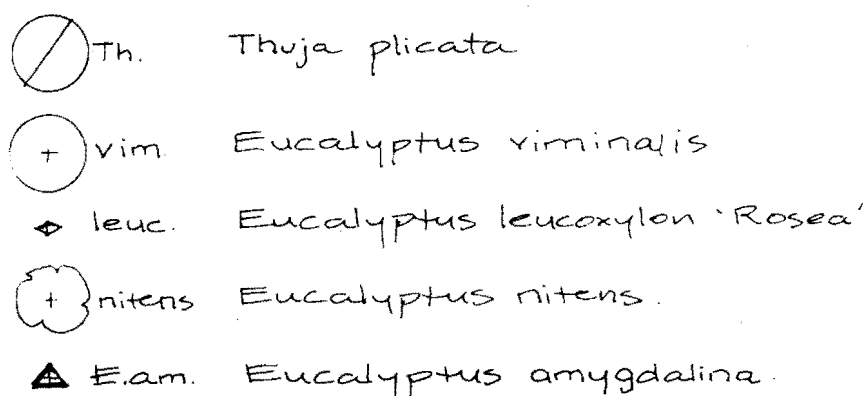 Th. Thuja plicata
vim. Eucalyptus viminalis
leuc. Eucalyptus leucoxylon 'Rosea'
nitens Eucalyptus nitens.
E.am. Eucalyptus amygdalina.